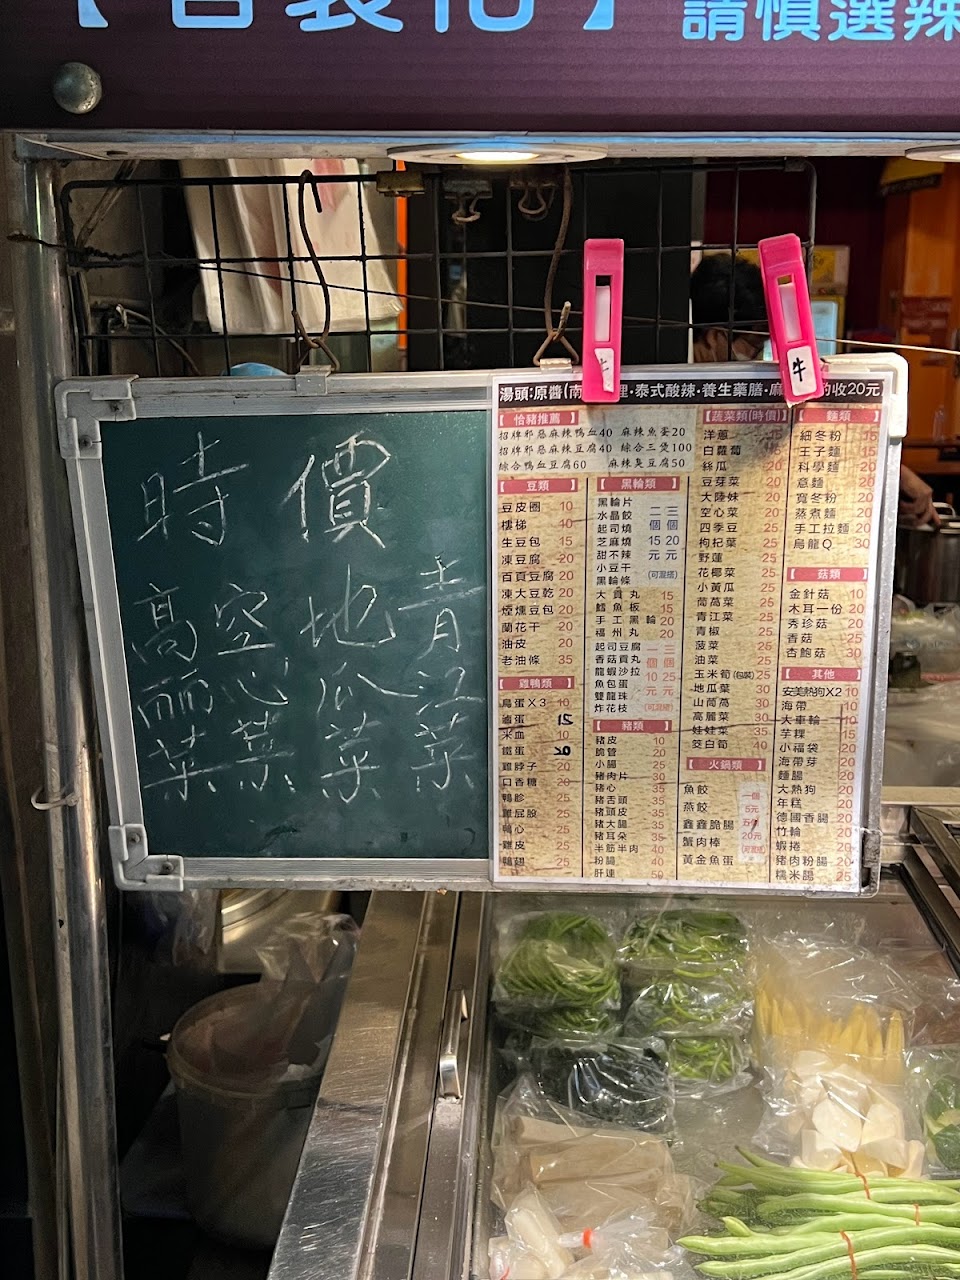 請慎選辣
時價
高 空 地 青
而 心 瓜 江
菜 菜 菜 菜
牛
湯頭:原醬(南
理·泰式酸辣·養生藥膳·麻
收20元
恰豬推薦
招牌邪惡麻辣鴨血40 麻辣魚蛋20
招牌邪惡麻辣豆腐40 綜合三煲100
綜合鴨血豆腐60 麻辣臭豆腐50
豆類
豆皮圈 10
樓梯 40
生豆包 15
凍豆腐 20
百頁豆腐 20
凍大豆乾 20
煙燻豆包 20
蘭花干 20
油皮 20
老油條 35
雞鴨類
鳥蛋X3 10
滷蛋 15
米血 10
鐵蛋 20
雞脖子 20
口香糖 20
鴨胗 25
雞屁股 25
鴨心 25
雞皮 25
鴨翅 25
黑輪類
黑輪片
水晶餃
起司燒
芝麻燒
甜不辣
小豆干
黑輪條
二三
個個
15 20
元元
(可混搭)
大貢丸 15
鱈魚板 15
手工黑輪 20
福州丸 20
起司豆腐
香菇貢丸
龍蝦沙拉
魚包蛋
雙龍珠
炸花枝
二三
個個
10 25
元元
(可混搭)
豬類
豬皮 10
脆管 20
小腸 25
豬肉片 30
豬心 35
豬舌頭 35
豬頭皮 35
豬大腸 35
豬耳朵 35
半筋半肉 40
粉腸 40
肝連 50
蔬菜類(時價)
洋蔥
白蘿蔔
絲瓜 20
豆芽菜 20
大陸妹 20
空心菜 20
四季豆 25
枸杞葉 25
野蓮 25
花椰菜 25
小黃瓜 25
茼萵菜 25
青江菜 25
青椒 25
菠菜 25
油菜 25
玉米筍(包裝) 25
地瓜葉 30
山茼萵 30
高麗菜 30
娃娃菜 35
茭白筍 40
火鍋類
魚餃
燕餃
鑫鑫脆腸
蟹肉棒
黃金魚蛋
一個
5元
20元
(可混搭)
麵類
細冬粉 15
王子麵 15
科學麵 20
意麵 20
寬冬粉 20
蒸煮麵 20
手工拉麵 20
烏龍Q 30
菇類
金針菇 10
木耳一份 20
秀珍菇 20
香菇 25
杏鮑菇 25
其他
安美熱狗X2 10
海帶 10
大車輪 10
芋粿 15
小福袋 20
海帶芽 20
麵腸 20
大熱狗 20
年糕 20
德國香腸 20
竹輪 20
蝦捲 20
豬肉粉腸 20
糯米腸 25